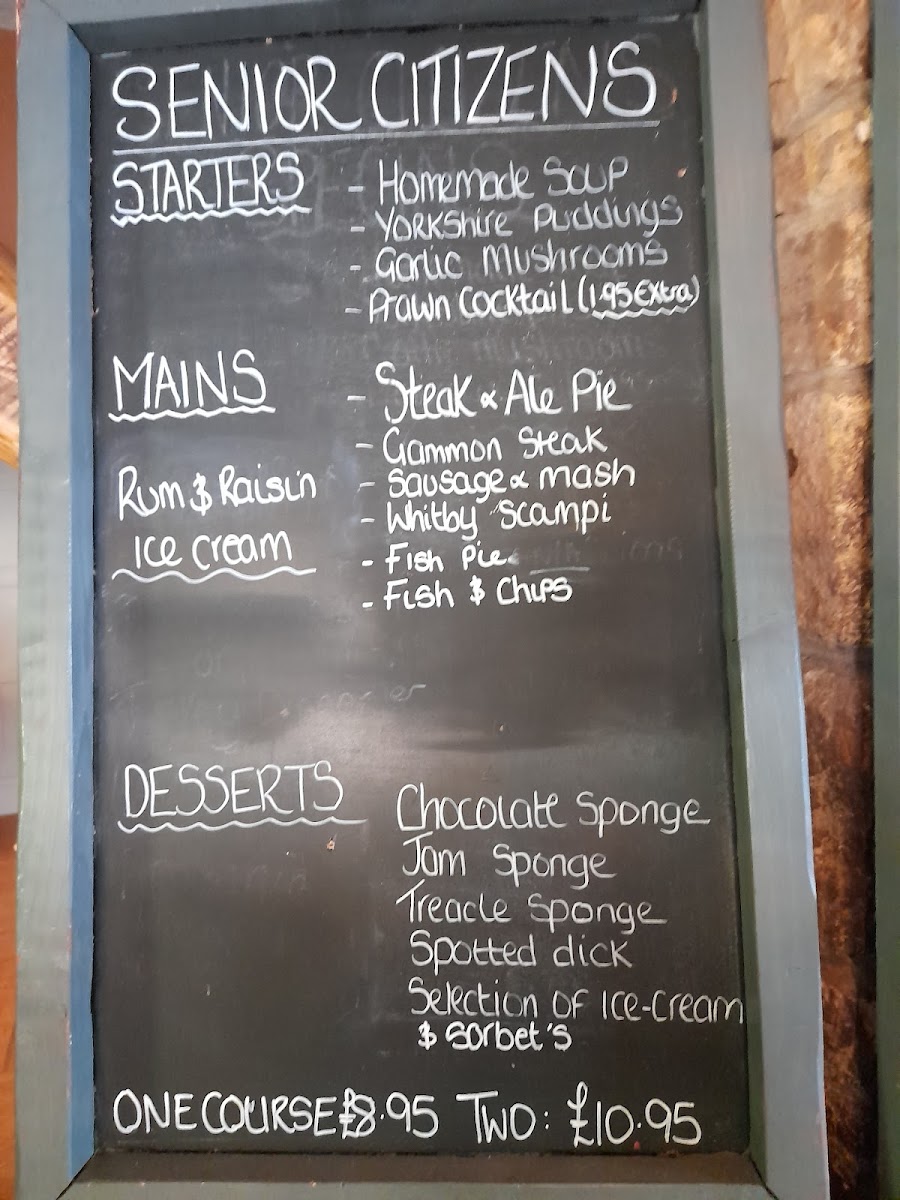 SENIOR CITIZENS
STARTERS - Homemade Soup
- Yorkshire Puddings
- Garlic Mushrooms
- Prawn Cocktail (1.95 Extra)
MAINS - Steak & Ale Pie
- Gammon Steak
Rum & Raisin - Sausage & mash
- Whitby Scampi
Ice cream - Fish Pie
- Fish & Chips
DESSERTS Chocolate Sponge
Jam Sponge
Treacle Sponge
Spotted dick
Selection of Ice-Cream
& Sorbet's
ONE COURSE £8.95 TWO: £10.95